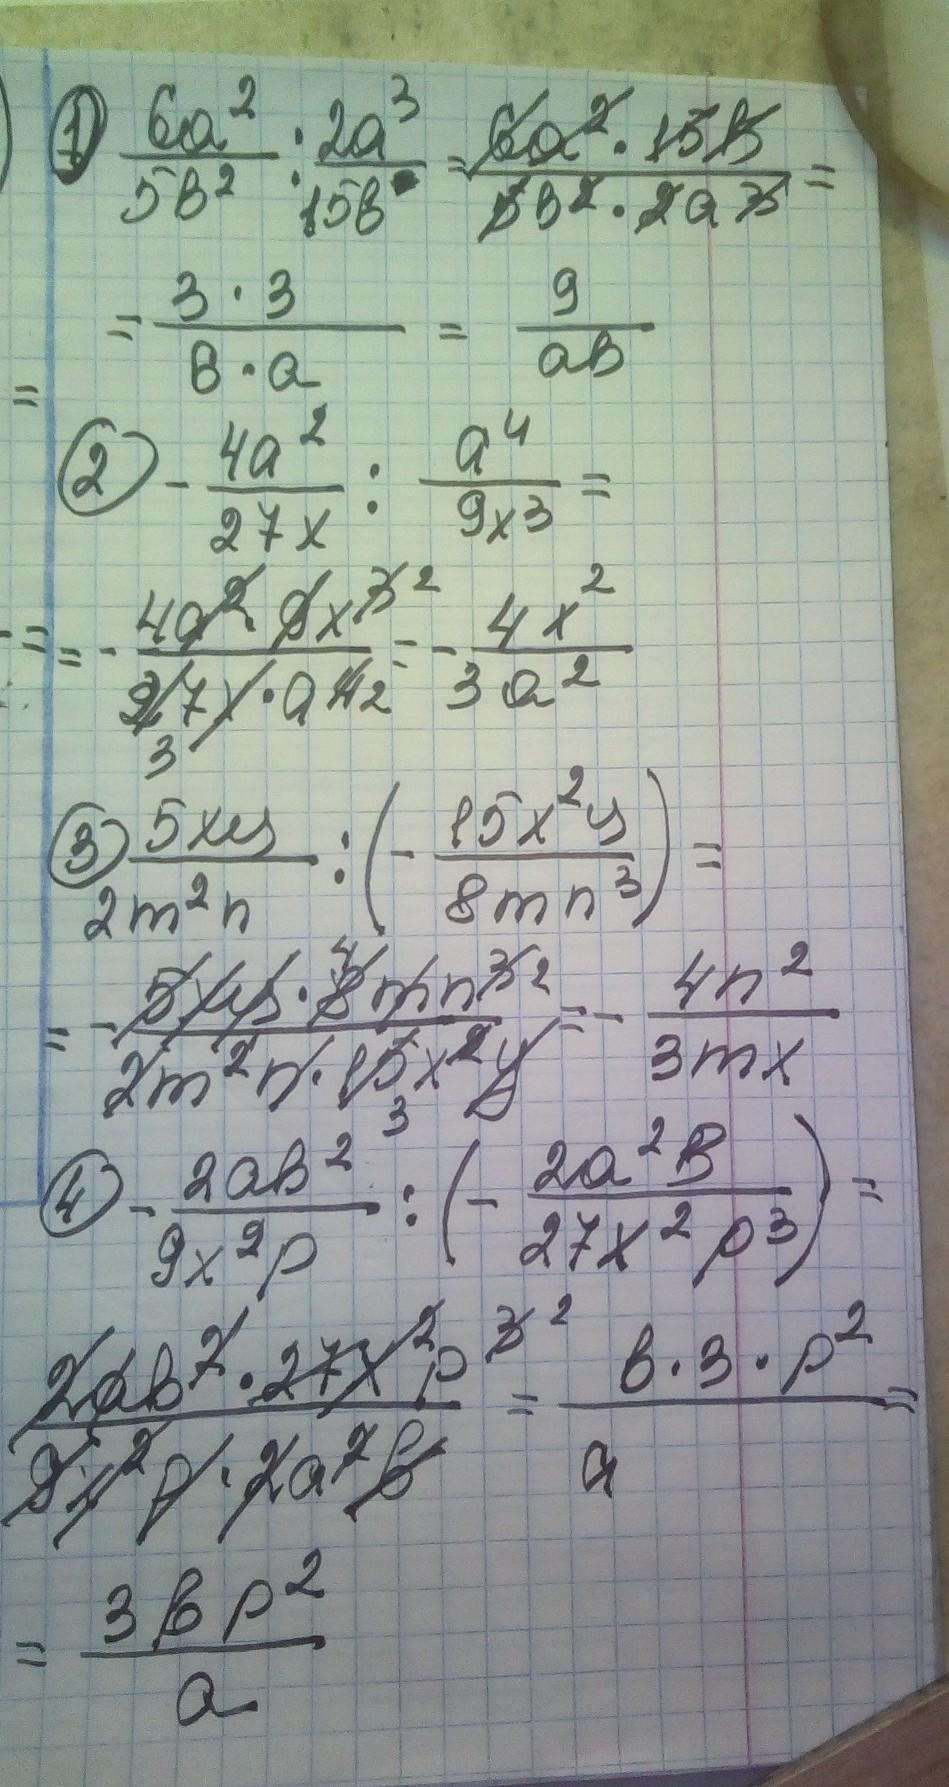 ① 6a²/5в² : 2a³/15в = 6a² · 15в/5в² · 2a³ =
= 3 · 3/в · a = 9/aв
=
② - 4a²/27x : a⁴/9x³ =
= - 4a² 9x³ ²/27x · a⁴ 2 = - 4x²/3a²
3
③ 5xy/2m²n : (- 15x²y/8mn³) =
4
= - 5xy · 8mn³ ²/2m²n · 15x²y = - 4n²/3mx
3
④ - 2aв²/9x²p : (- 2a²в/27x²p³) =
2aв² · 27x²p³ ²/9x²p · 2a²в = в · 3 · p²/a =
= 3вp²/a